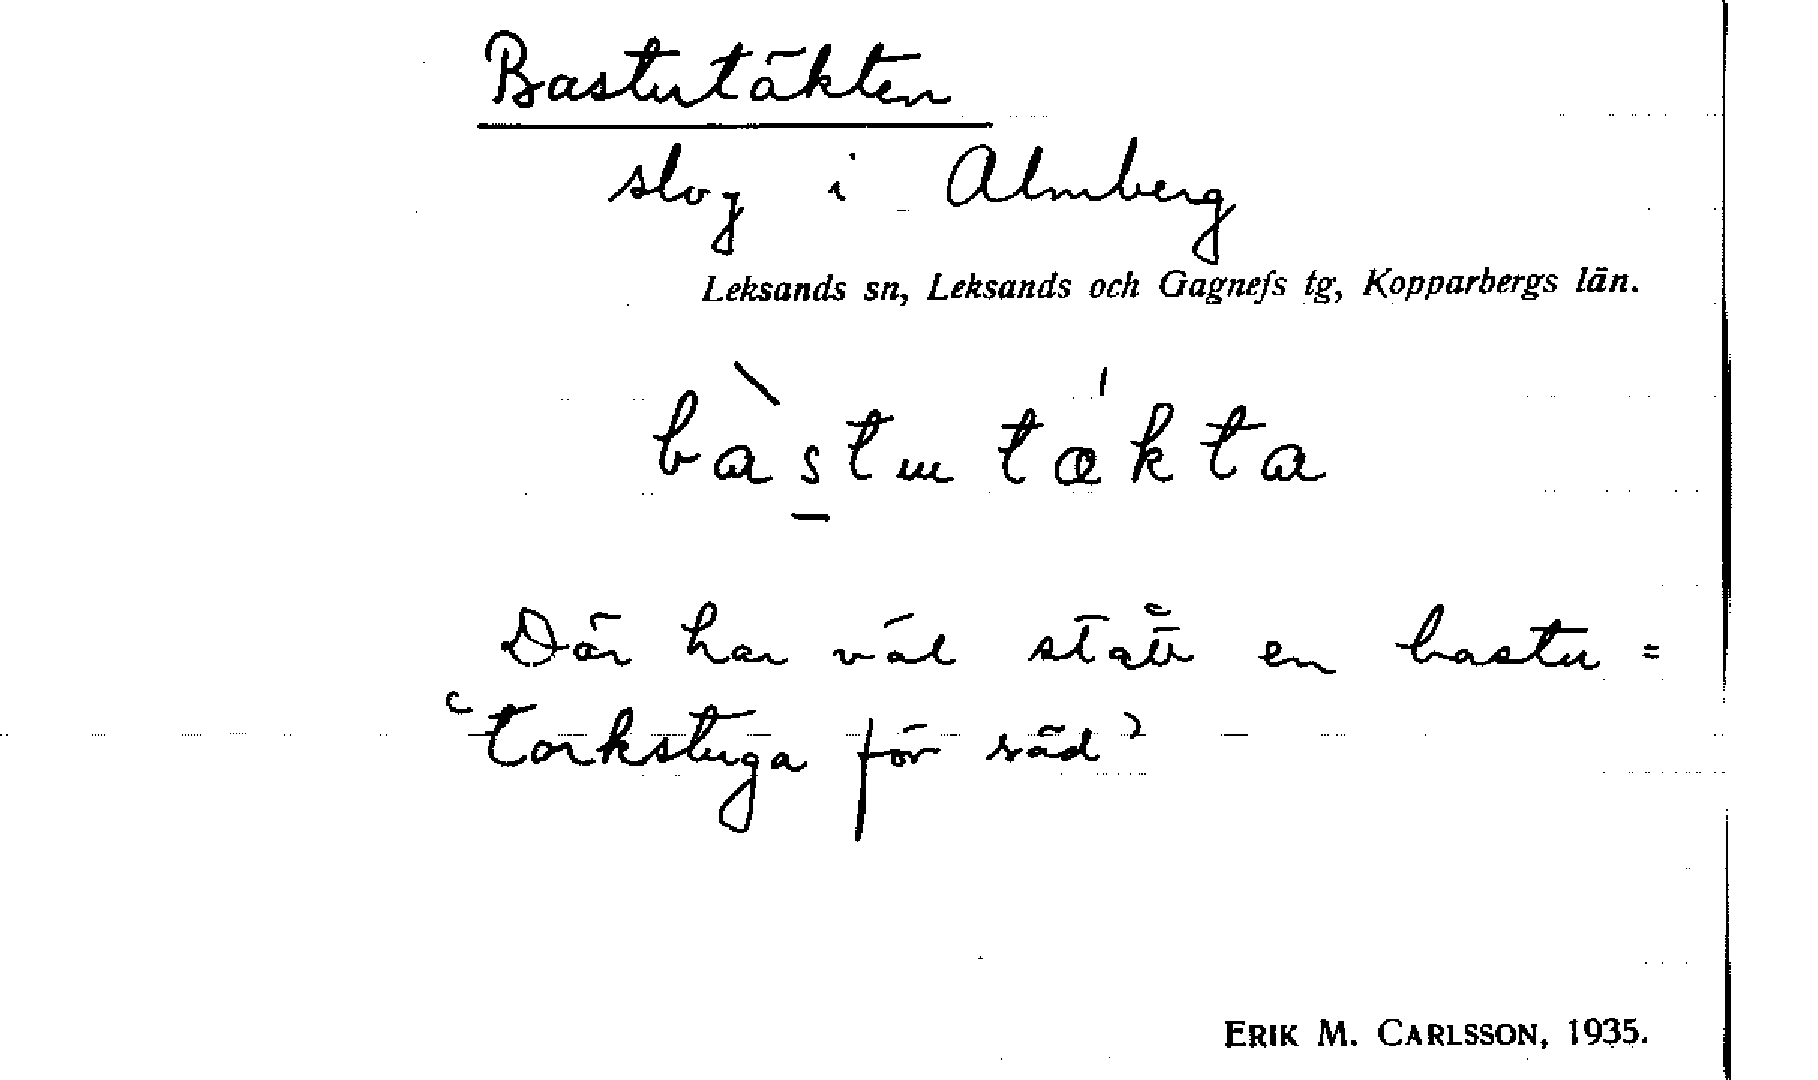 Bastutäkten
slog i Almberg
Leksands sn, Leksands och Gagnefs tg, Kopparbergs län.
bàstu tækta
Där har väl stått en bastu =
'torkstuga för säd'
ERIK M. CARLSSON, 1935.